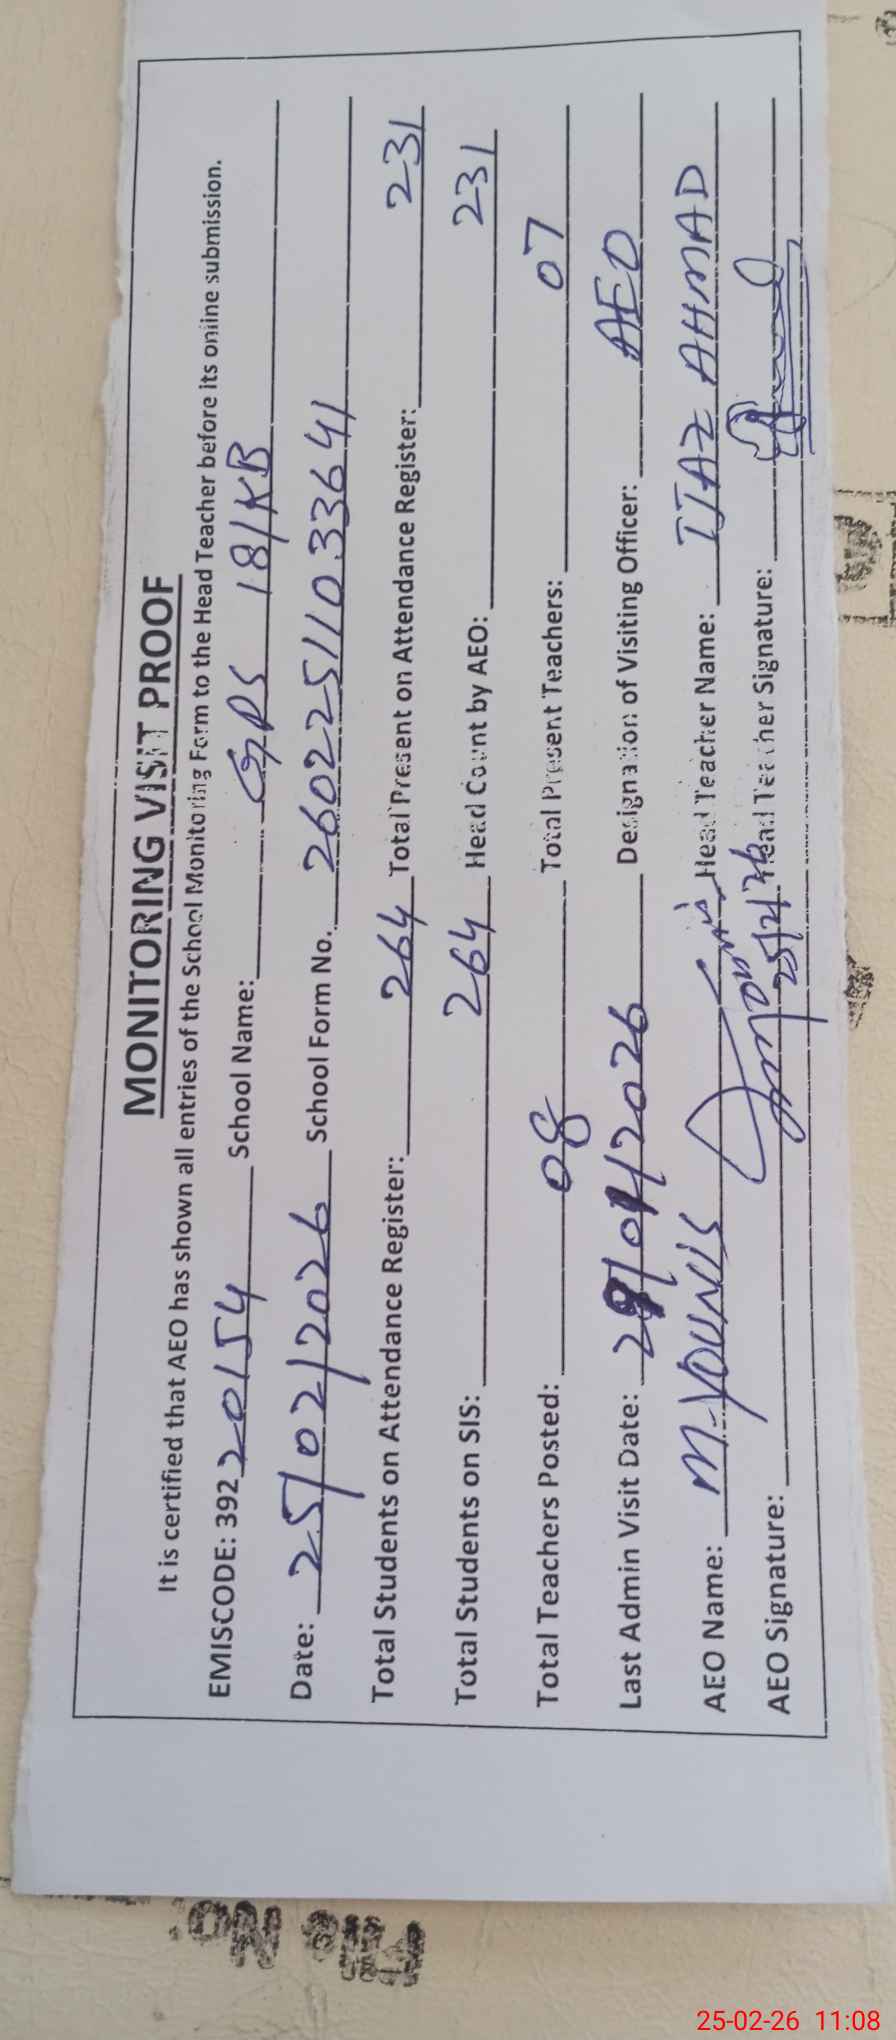 MONITORING VISIT PROOF
It is certified that AEO has shown all entries of the School Monitoring Form to the Head Teacher before its online submission.
EMISCODE: 392 20154 School Name: GPS 181KB
Date: 25/02/2026 School Form No. 26022511033641
Total Students on Attendance Register: 264 Total Present on Attendance Register: 231
Total Students on SIS: 264 Head Count by AEO: 231
Total Teachers Posted: 08 Total Present Teachers: 07
Last Admin Visit Date: /2026 Designation of Visiting Officer: AEO
AEO Name: M-YOUNIS Head Teacher Name: IJAZ AHMAD
AEO Signature: 25/2/26 Head Teacher Signature:
File No.
25-02-26 11:08